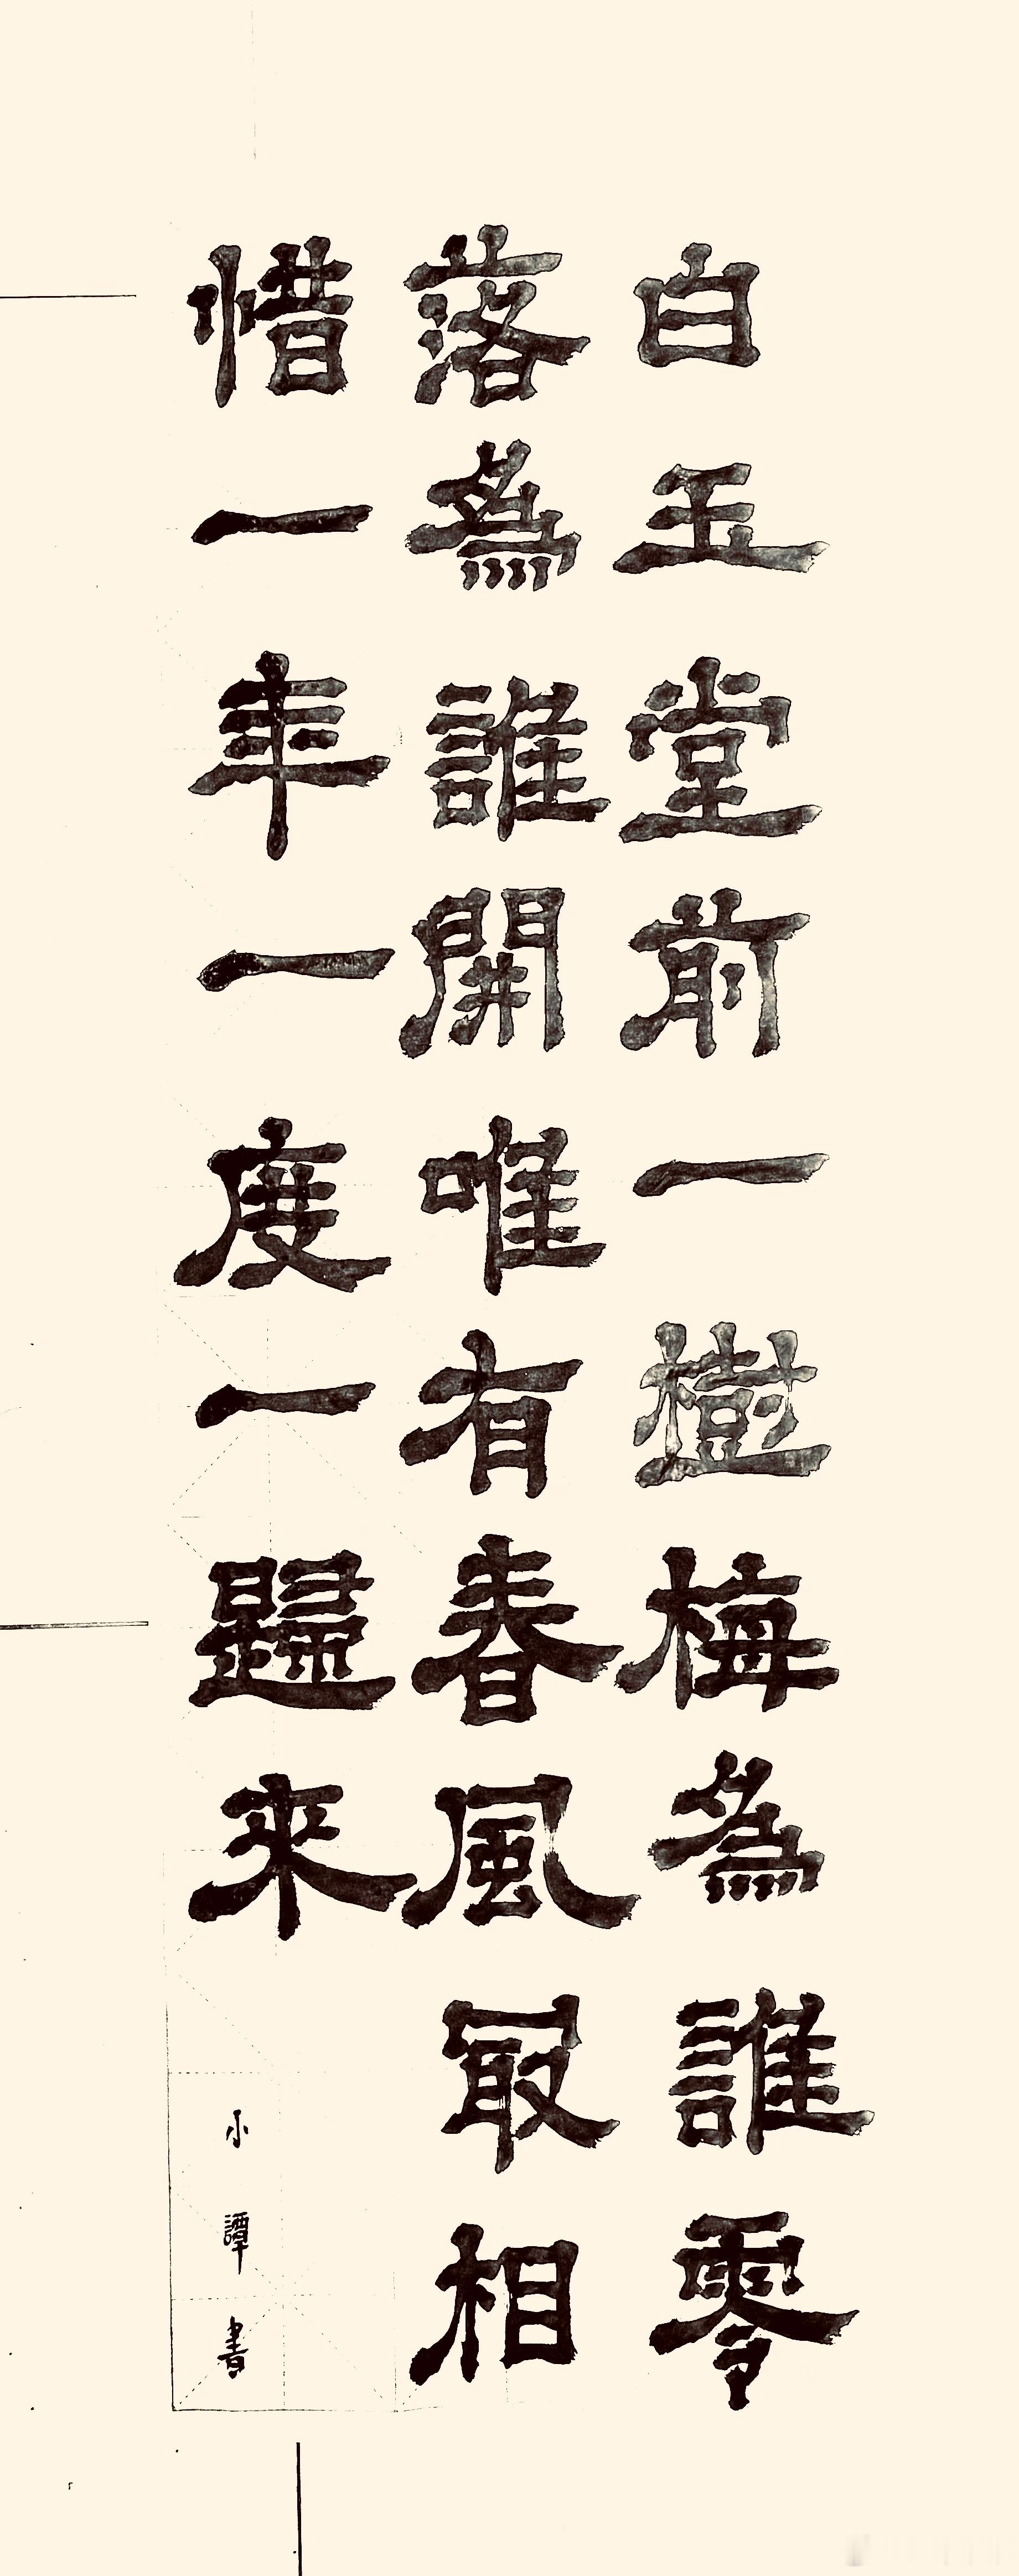 白玉堂前一樹梅為誰零
落為誰開唯有春風最相
惜一年一度一歸來
小譚書